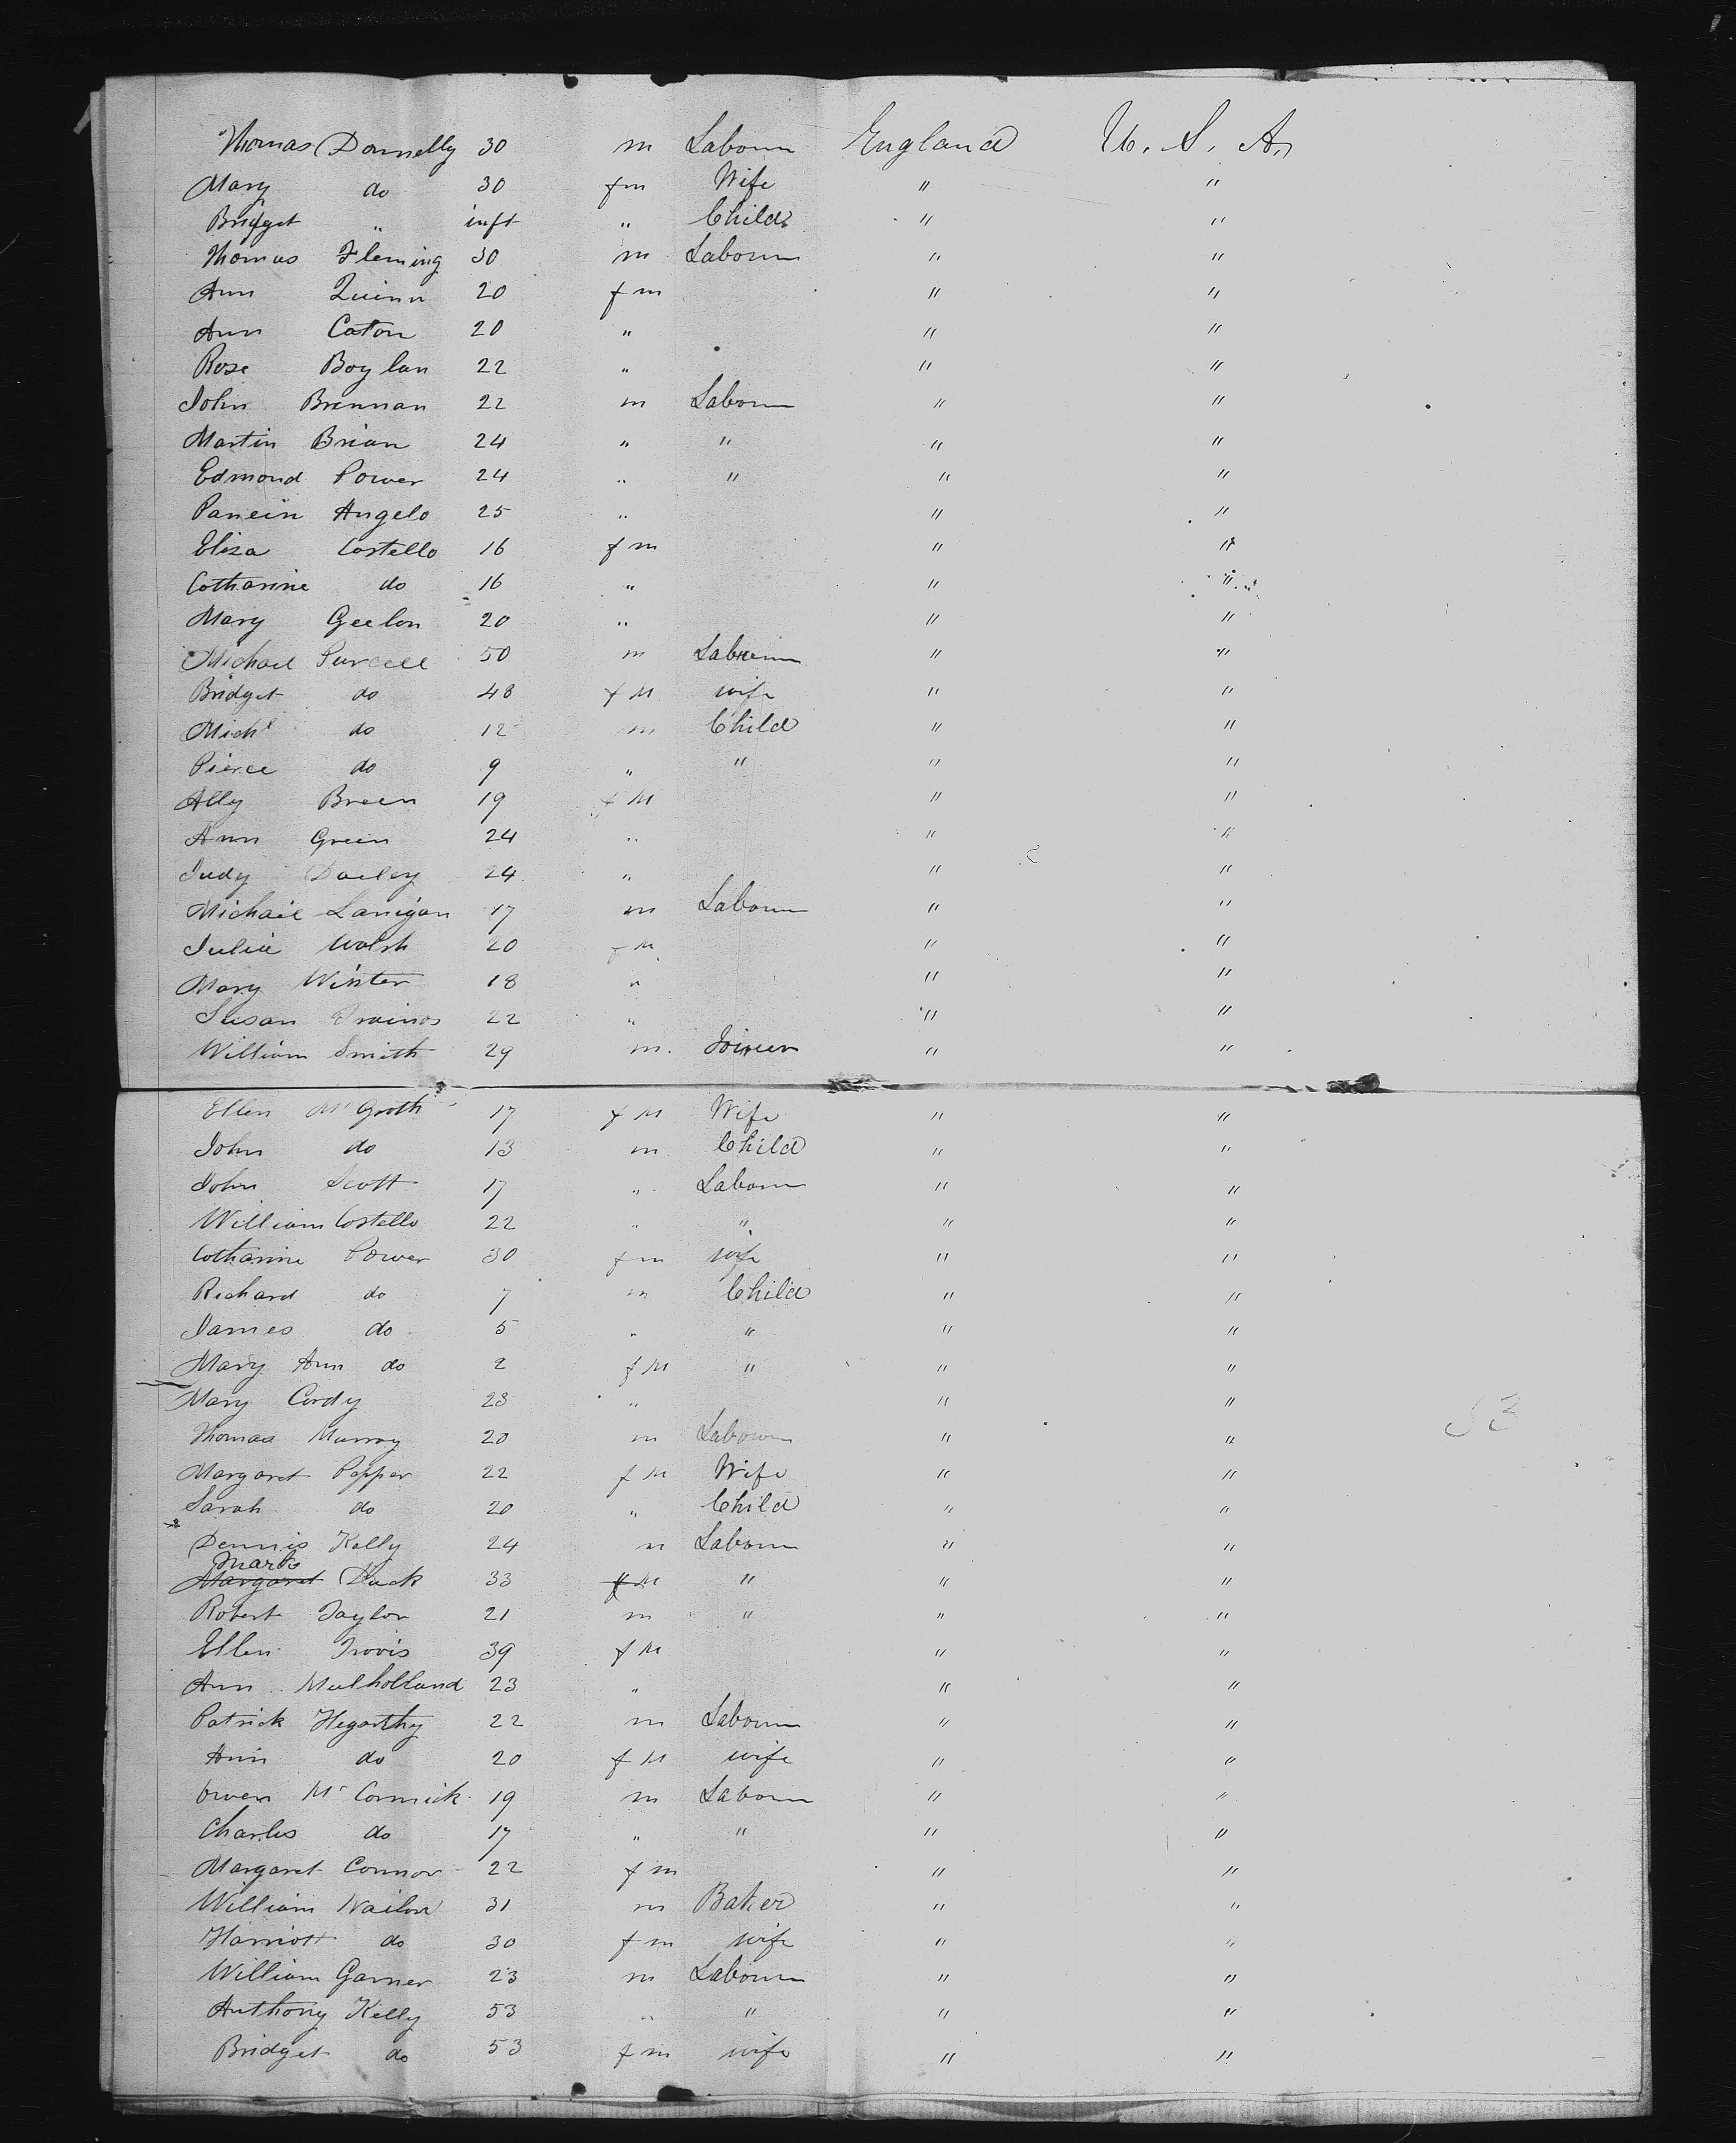 Thomas Donnelly 30 m Labourer England U. S. A.
Mary do 30 fm Wife " "
Bridget " inft " Child " "
Thomas Fleming 30 m Labourer " "
Ann Quinn 20 fm " "
Ann Caton 20 " " "
Rose Boylan 22 " " "
John Brennan 22 m Labourer " "
Martin Brian 24 " " " "
Edmond Power 24 " " " "
Panein Angelo 25 " " "
Eliza Costello 16 fm " "
Catharine do 16 " " "
Mary Geelon 20 " " "
Michael Purcell 50 m Labourer " "
Bridget do 48 fm wife " "
Michl do 12 m Child " "
Pierce do 9 " " " "
Ally Breen 19 fm " "
Ann Green 24 " " "
Judy Dailey 24 " " "
Michail Lanigan 17 m Labourer " "
Julia Walsh 20 fm " "
Mary Winter 18 " " "
Susan 22 " " "
William Smith 29 m. Joiner " "
Ellen McGrath 17 fm Wife " "
John do 13 m Child " "
John Scott 17 " Labourer " "
William Costello 22 " " " "
Catharine Power 30 fm wife " "
Richard do 7 m Child " "
James do 5 " " " "
Mary Ann do 2 fm " " "
Mary Cordy 23 " " "
Thomas Murray 20 m Labourer " "
Margaret Pepper 22 fm Wife " "
Sarah do 20 " Child " "
Dennis Kelly 24 m Labourer " "
Marks
Margaret Duck 33 fm " " "
Robert Taylor 21 m " " "
Ellen Travis 39 fm " "
Ann Mulholland 23 " " "
Patrick Hegarthy 22 m Labourer " "
Ann do 20 fm wife " "
Owen McCormick 19 m Labourer " "
Charles do 17 " " " "
Margaret Connor 22 fm " "
William Nailor 31 m Baker " "
Harriott do 30 fm wife " "
William Garner 23 m Labourer " "
Anthony Kelly 53 " " " "
Bridget do 53 fm wife " "